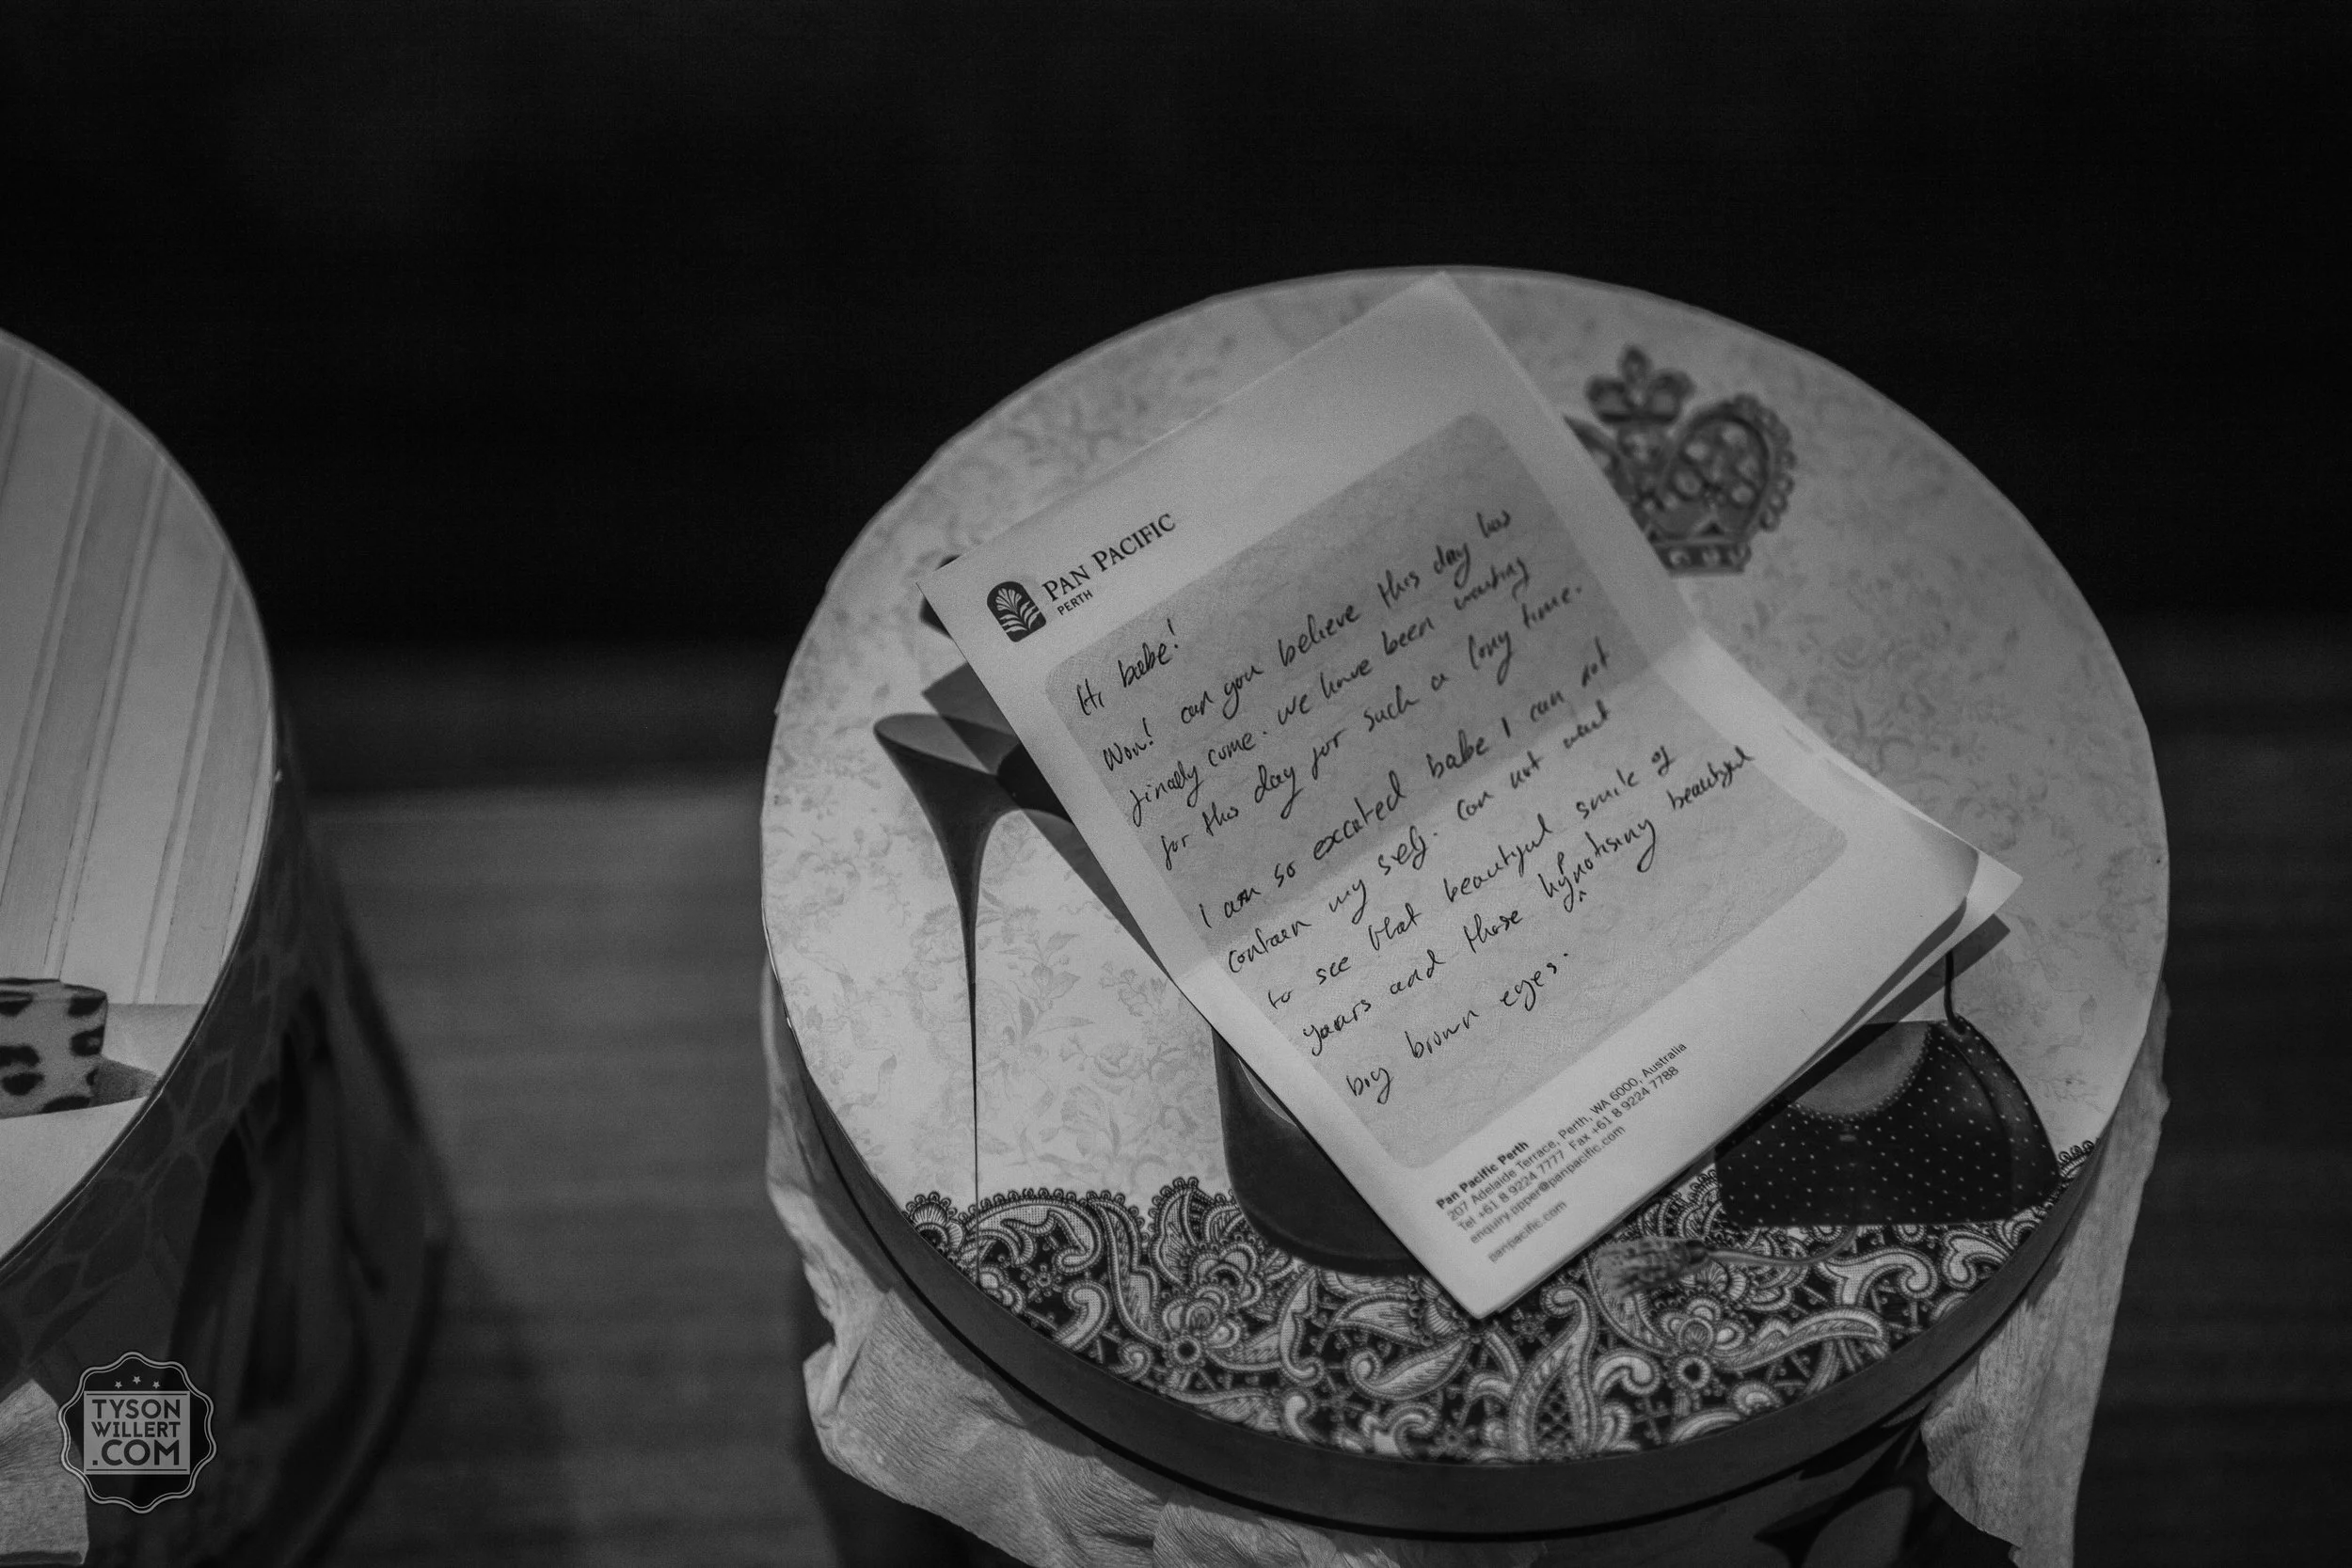 PAN PACIFIC
PERTH
Hi babe!
Wow! can you believe this day has
finally come. we have been waiting
for this day for such a long time.
I am so excated babe I can not
contaen my self. Can not wait
to see that beautyful smile of
yours and those hypnotising beautyful
big brown eyes.
Pan Pacific Perth
207 Adelaide Terrace, Perth, WA 6000, Australia
Tel +61 8 9224 7777 Fax +61 8 9224 7788
enquiry.ppper@panpacific.com
panpacific.com
TYSON
WILLERT
.COM